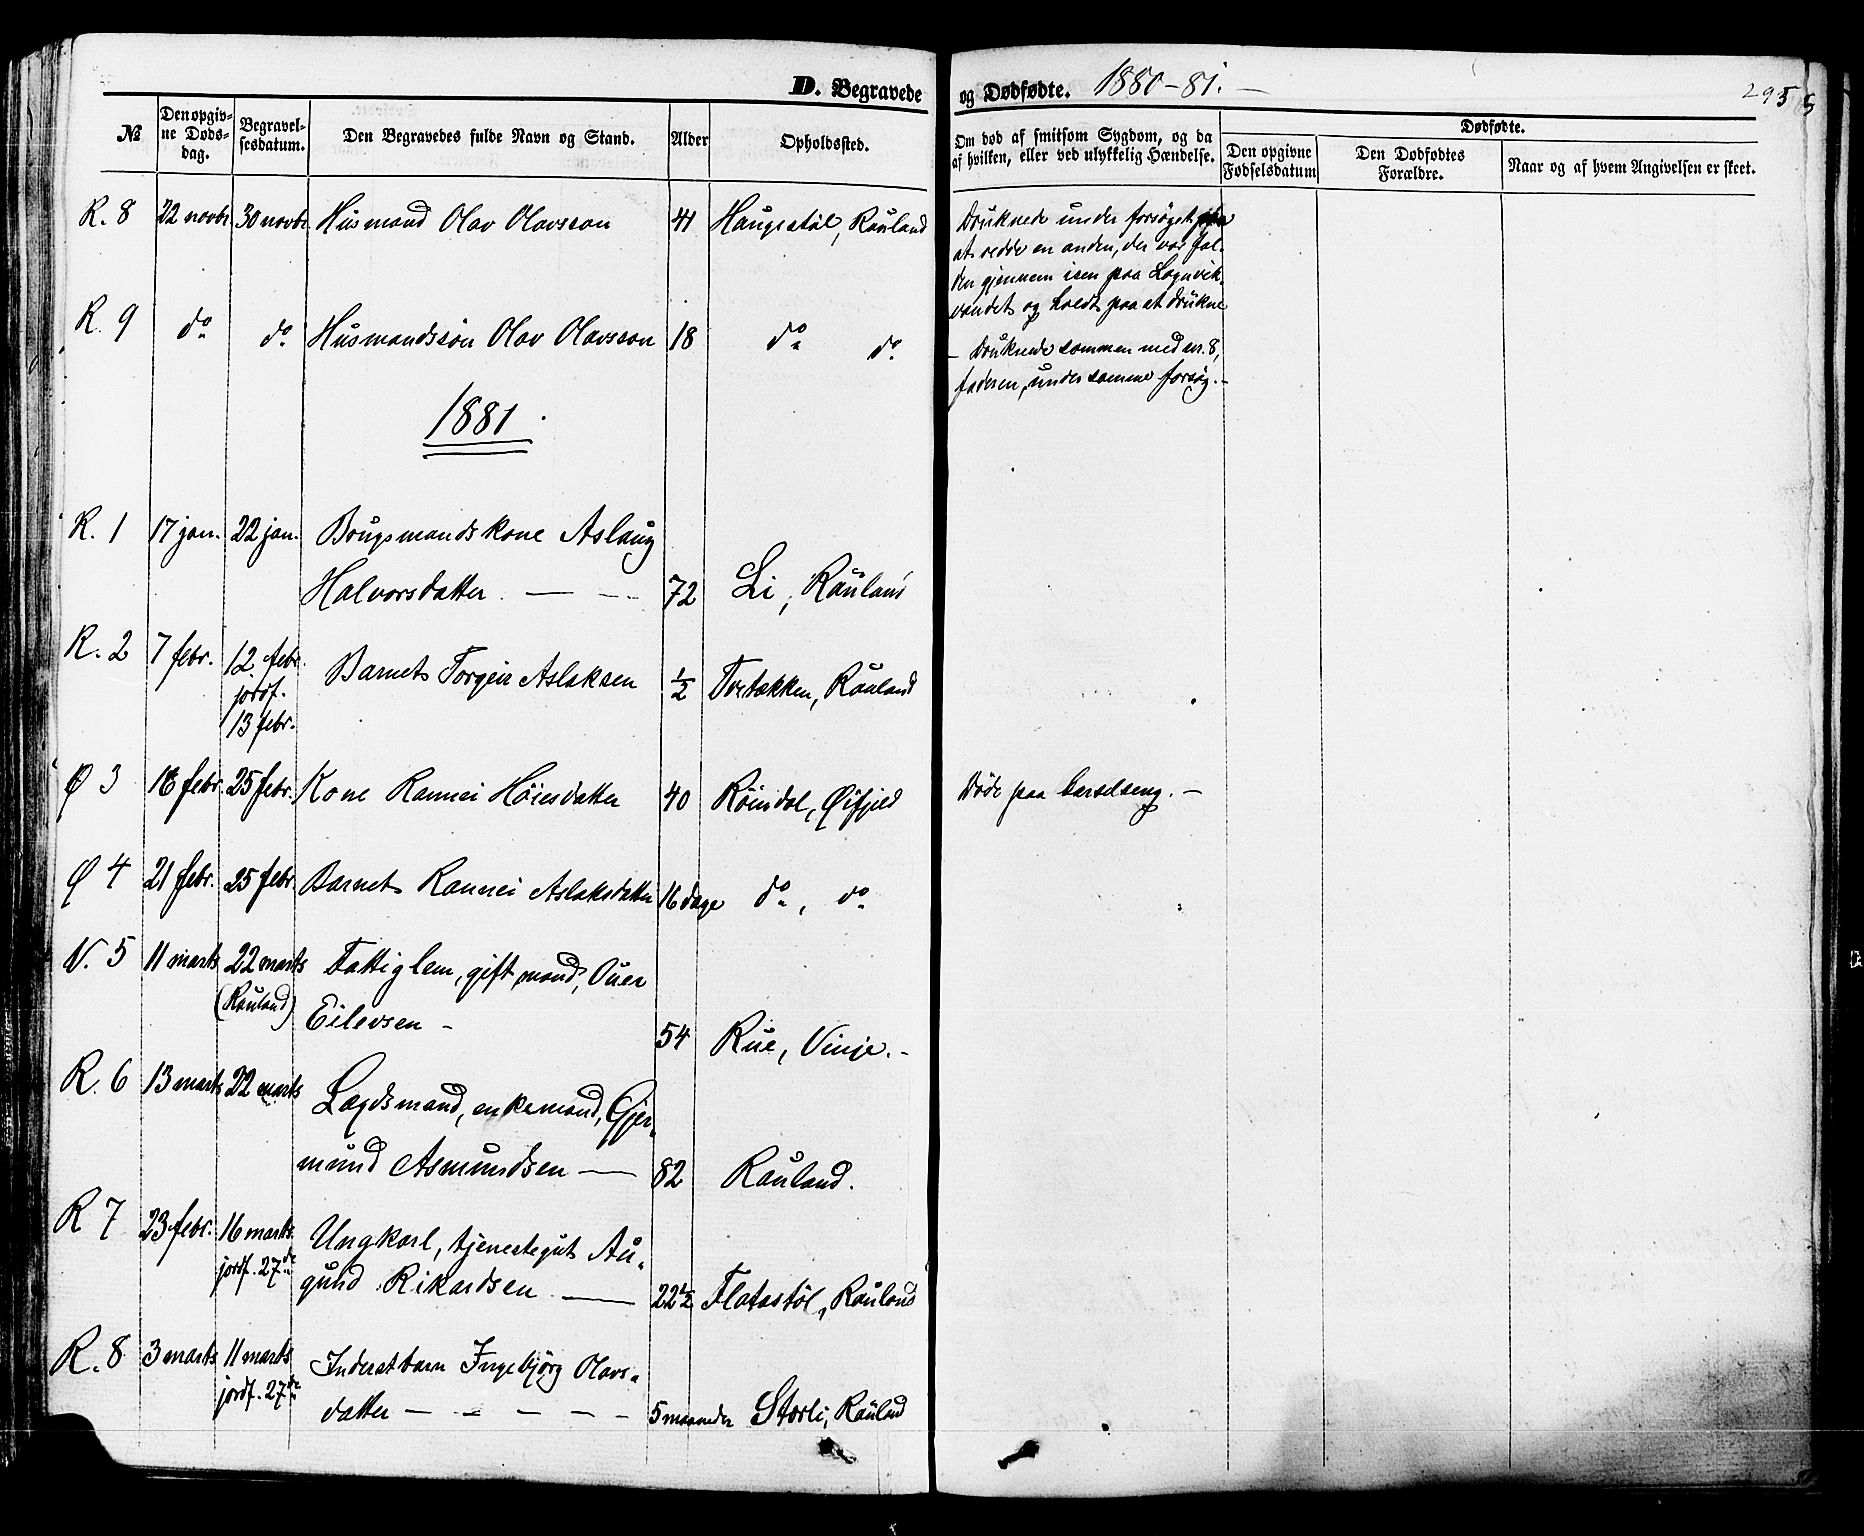 D. Begravede og Dødfødte. 1880-81. 295
№ Den opgivne Døds-dag. Begravelsesdatum. Den Begravedes fulde Navn og Stand. Alder Opholdssted. Om død af smitsom Sygdom, og da af hvilken, eller ved ulykkelig Hændelse. Dødfødte. Den opgivne Fødselsdatum Den Dødfødtes Forældre. Naar og af hvem Angivelsen er skeet.
R. 8 22 novbr 30 novbr. Husmand Olav Olavsson 41 Haugestøl, Rauland
Druknede under forsøget paa
at redde en anden, der var fal-
den gjennem isen paa Lognvik-
vandet og holdt paa at drukne
R. 9 do do. Husmandssøn Olav Olavsson 18 do do.
- Druknede sammen med nr. 8,
faderen, under samme forsøg. -
1881.
R. 1 17 jan. 22 jan. Brugsmandskone Aslaug
Halvorsdatter. 72 Li, Rauland
R. 2 7 febr. 12 febr.
jordf.
13 febr.
Barnet Torgeir Aslaksen 1/2 Tortakken, Rauland
Ø 3 18 febr. 25 febr. Kone Rannei Høiesdatter 40 Röindal, Øifjeld Döde paa barselseng. -
Ø 4 21 febr. 25 febr. Barnet Rannei Aslaksdatter 16 dage do, do
V. 5 11 marts 22 marts
(Rauland)
Fattiglem, gift mand, Ouer
Eilevsen - 54 Rue, Vinje. -
R. 6 13 marts 22 marts Lægdsmand, enkemand, Gjer-
mund Asmundsen 82 Rauland.
R 7 23 febr. 16 marts.
jordf. 27de
Ungkarl, tjenestegut Au-
gund Rikardsen 22 1/2 Flatastøl, Rauland
R. 8 3 marts 11 marts
jordf. 27de
Inderstbarn Ingebjörg Olavs-
datter - - - - - 5 maaneder Storli, Rauland